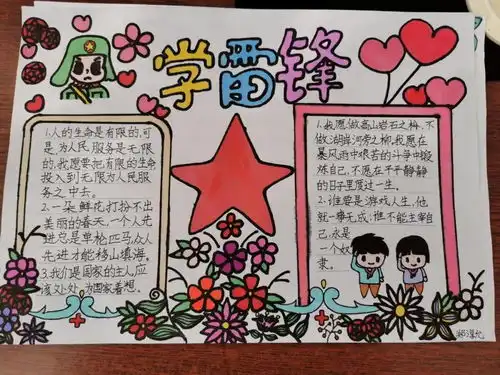 学雷锋
1.人的生命是有限的,可
是,为人民服务是无限
的,我愿要把有限的生命,
投入到无限为人民服
务之中去。
2.一朵鲜花打扮不出
美丽的春天,一个人先
进总是单枪匹马,众人
先进才能移山填海。
3.我们是国家的主人,应
该处处为国家着想。
1.我愿做高山岩石之松,不
做湖岸河旁之柳,我愿在
暴风雨中艰苦的斗争中锻
炼自己,不愿在平平静静
的日子里度过一生。
2.谁要是游戏人生,他
就一事无成;谁不能主宰自
己,永远是
一个奴
隶。